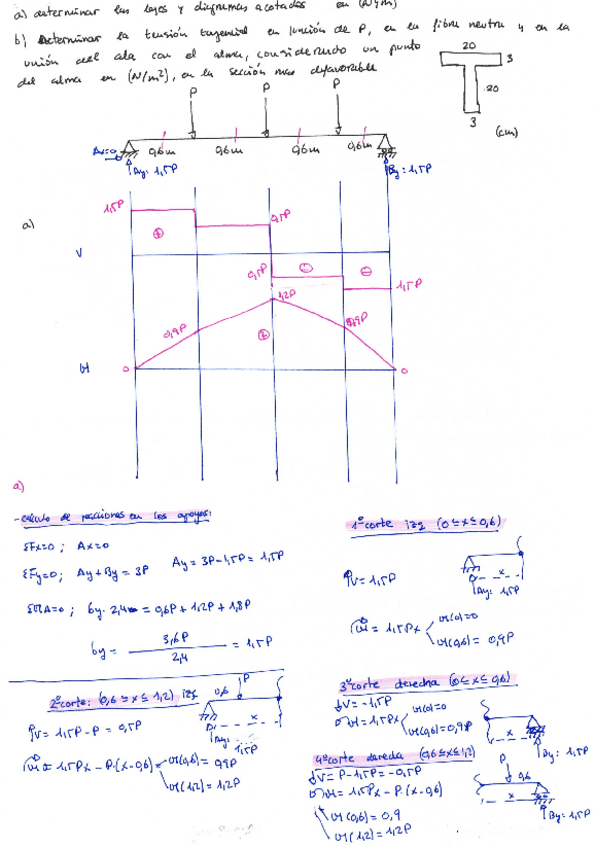 a) determinar las leyes y diagramas acotados en (N y m)
b) Determinar la tensión tangencial en función de P, en la fibra neutra y en la
unión del ala con el alma, considerando un punto
del alma en (N/m²), en la sección mas desfavorable
20
3
20
3
(cm)
P
P
P
Ax=0
0,6m
0,6m
0,6m
0,6m
Ay: 1,5P
By: 1,5P
a)
1,5P
+
0,5P
V
0,5P
-
-
1,5P
1,2P
0,9P
0,9P
+
M
0
0
a)
-cálculo de reacciones en los apoyos:
ΣFx=0 ; Ax=0
ΣFy=0 ; Ay+By = 3P Ay = 3P-1,5P = 1,5P
ΣMA=0 ; By· 2,4 = 0,6P + 1,2P + 1,8P
By = 3,6P / 2,4 = 1,5P
1º corte izq (0≤x≤0,6)
V = 1,5P
M = 1,5Px
M(0)=0
M(0,6) = 0,9P
x
Ay: 1,5P
2º corte: (0,6 ≤ x ≤ 1,2) izq
0,6
P
V = 1,5P - P = 0,5P
x
Ay=
1,5P
M = 1,5Px - P·(x-0,6)
M(0,6) = 0,9P
M(1,2) = 1,2P
3º corte derecha (0≤x≤0,6)
V = -1,5P
M = 1,5Px
M(0)=0
M(0,6) = 0,9P
x
By: 1,5P
4º corte derecha (0,6≤x≤1,2)
V = P-1,5P = -0,5P
M = 1,5Px - P·(x-0,6)
M(0,6) = 0,9
M(1,2) = 1,2P
P
0,6
x
By: 1,5P